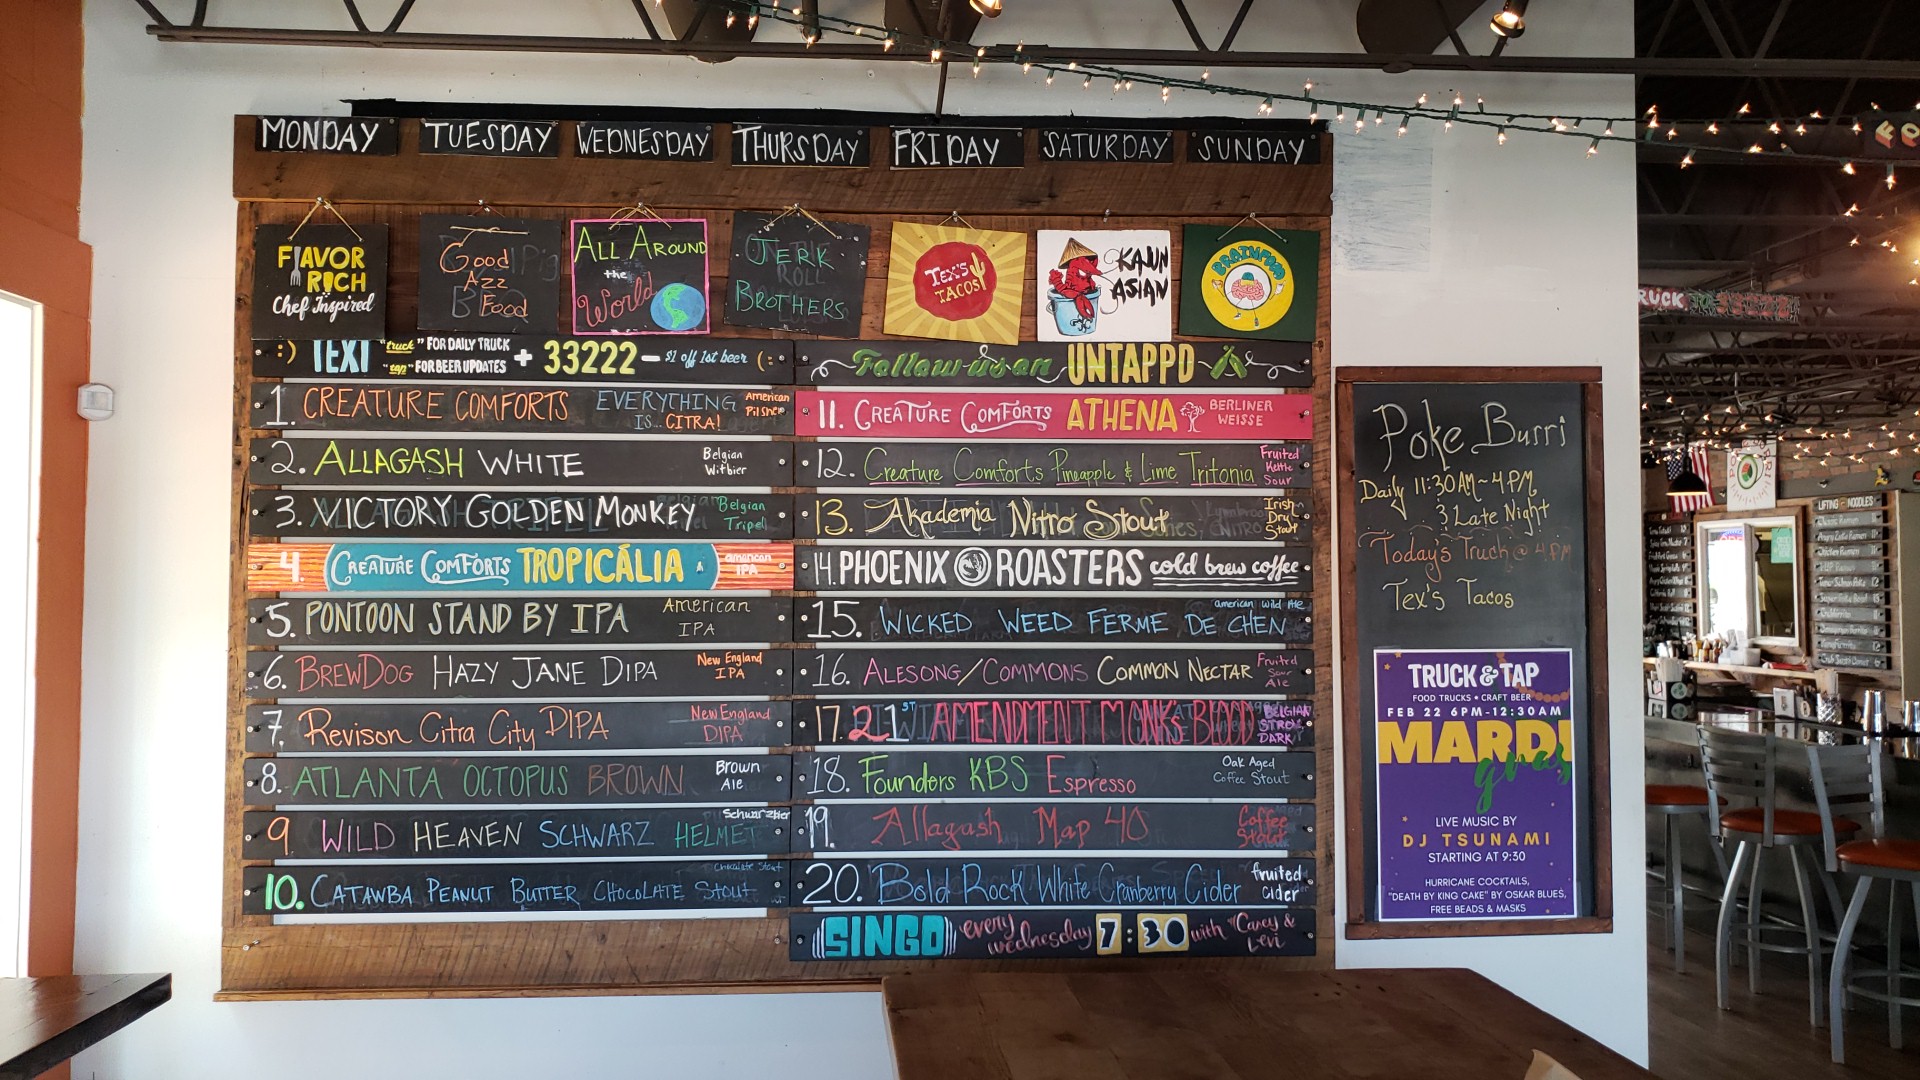 MONDAY TUESDAY WEDNESDAY THURSDAY FRIDAY SATURDAY SUNDAY
FLAVOR
RICH
Chef Inspired
Good
Azz
Food
ALL AROUND
the
World
JERK
ROLL
BROTHERS
TEX'S
TACOS
KAJUN
ASIAN
BRAINFOOD
:) TEXT "truck" FOR DAILY TRUCK
"tap" FOR BEER UPDATES + 33222 - $1 off 1st beer (:
1. CREATURE COMFORTS EVERYTHING
IS... CITRA! American
Pilsner
2. ALLAGASH WHITE Belgian
Witbier
3. VICTORY GOLDEN MONKEY Belgian
Tripel
4. CREATURE COMFORTS TROPICÁLIA american
IPA
5. PONTOON STAND BY IPA American
IPA
6. BREWDOG HAZY JANE DIPA New England
IPA
7. Revison Citra City DIPA New England
DIPA
8. ATLANTA OCTOPUS BROWN Brown
Ale
9. WILD HEAVEN SCHWARZ HELMET Schwarzbier
10. CATAWBA PEANUT BUTTER CHOCOLATE STOUT Chocolate Stout
Follow us on UNTAPPD
11. CREATURE COMFORTS ATHENA BERLINER
WEISSE
12. Creature Comforts Pineapple & Lime Tritonia Fruited
Kettle
Sour
13. Akademia Nitro Stout Irish
Dry
Stout
14. PHOENIX ROASTERS cold brew coffee
15. WICKED WEED FERME DE CHEN american wild Ale
16. ALESONG/COMMONS COMMON NECTAR Fruited
Sour
Ale
17. 21ST AMENDMENT MONK'S BLOOD BELGIAN
STRONG
DARK
18. Founders KBS Espresso Oak Aged
Coffee Stout
19. Allagash Map 40 Coffee
Stout
20. Bold Rock White Cranberry Cider fruited
cider
SINGO every
wednesday 7:30 with Casey &
Levi
Poke Burri
Daily 11:30AM-4PM
& Late Night
Today's Truck @ 4PM
Tex's Tacos
TRUCK & TAP
FOOD TRUCKS • CRAFT BEER
FEB 22 6PM-12:30AM
MARDI
gras
LIVE MUSIC BY
DJ TSUNAMI
STARTING AT 9:30
HURRICANE COCKTAILS,
"DEATH BY KING CAKE" BY OSKAR BLUES,
FREE BEADS & MASKS